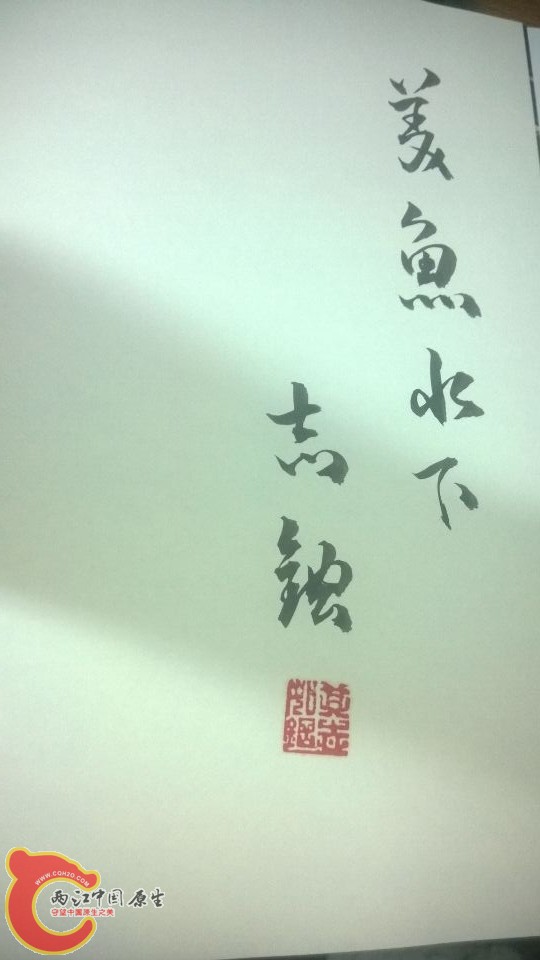 美魚水下
志
WWW.CQH2O.COM
两江中国原生
守望中国原生之美